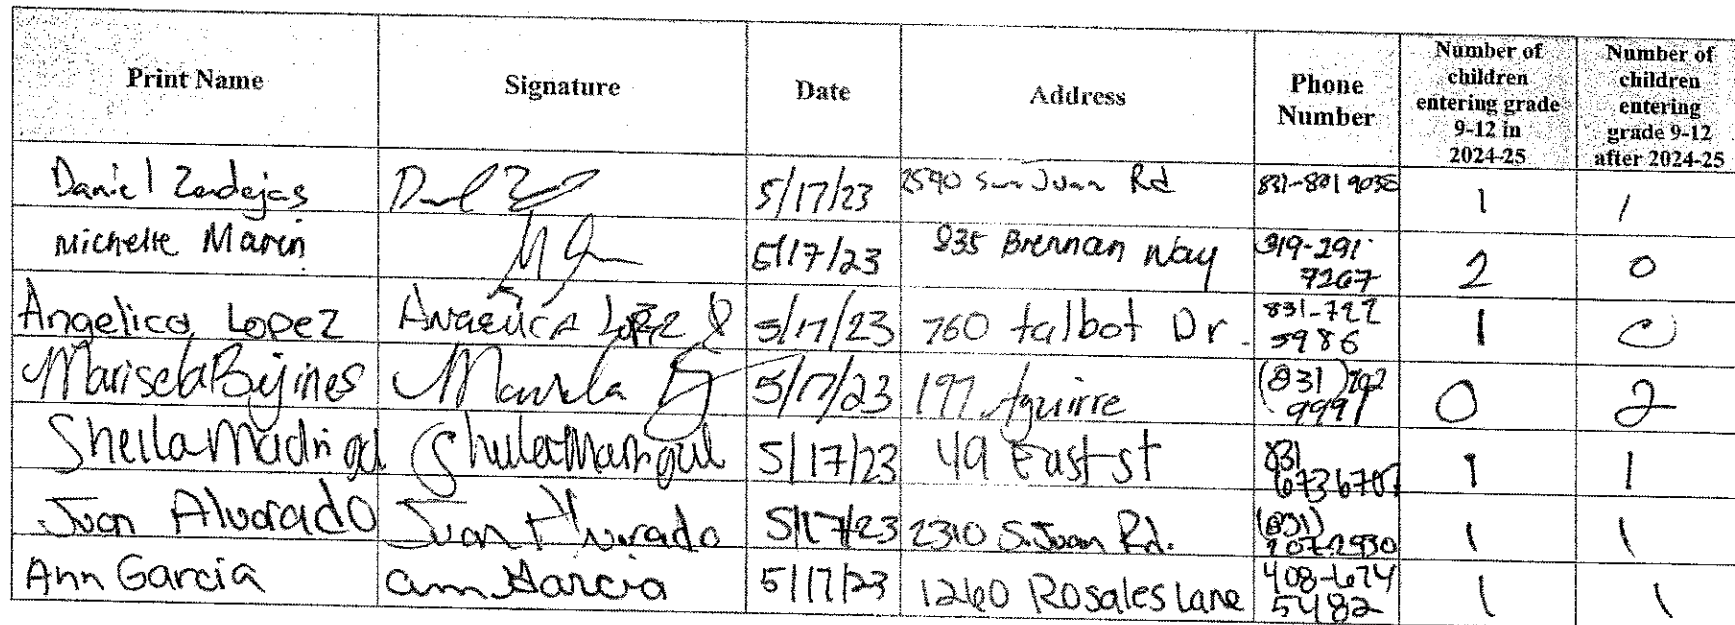 Print Name Signature Date Address Phone Number Number of children entering grade 9-12 in 2024-25 Number of children entering grade 9-12 after 2024-25
Daniel Zendejas 5/17/23 2590 San Juan Rd 831-801 9035 1 1
Michelle Marin 5/17/23 835 Brennan Way 319-291-7267 2 0
Angelica Lopez Angelica Lopez 5/17/23 760 talbot Dr. 831-722 5986 1 0
Marisela Bijines Marisela 5/17/23 197 Aguirre (831) 9991 0 2
Sheila Madrigal Sheila Madrigal 5/17/23 49 East st 831 1 1
Juan Alvarado Juan Alvarado 5/17/23 2310 S. Juan Rd. (831) 1 1
Ann Garcia ann Garcia 5/17/23 1260 Rosales Lane 408-674 5482 1 1